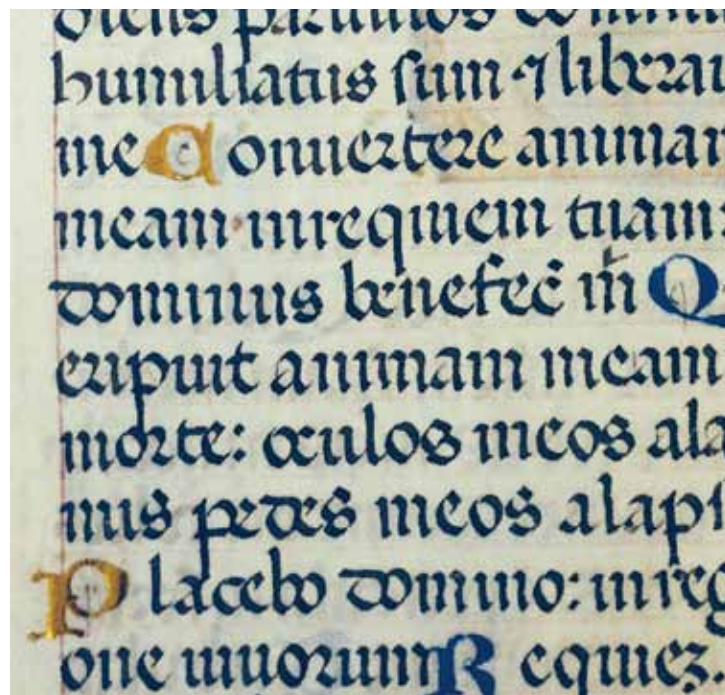 diens paruulos domin
humiliatus ſum ⁊ liberaui
me Conuertere anima
meam inrequiem tuam:
dominus benefec̃ m̃ Q
eripuit animam meam
morte: oculos meos ala
mis pedes meos alapſ
Placebo domino: inreg
one uiuorum Requiez.